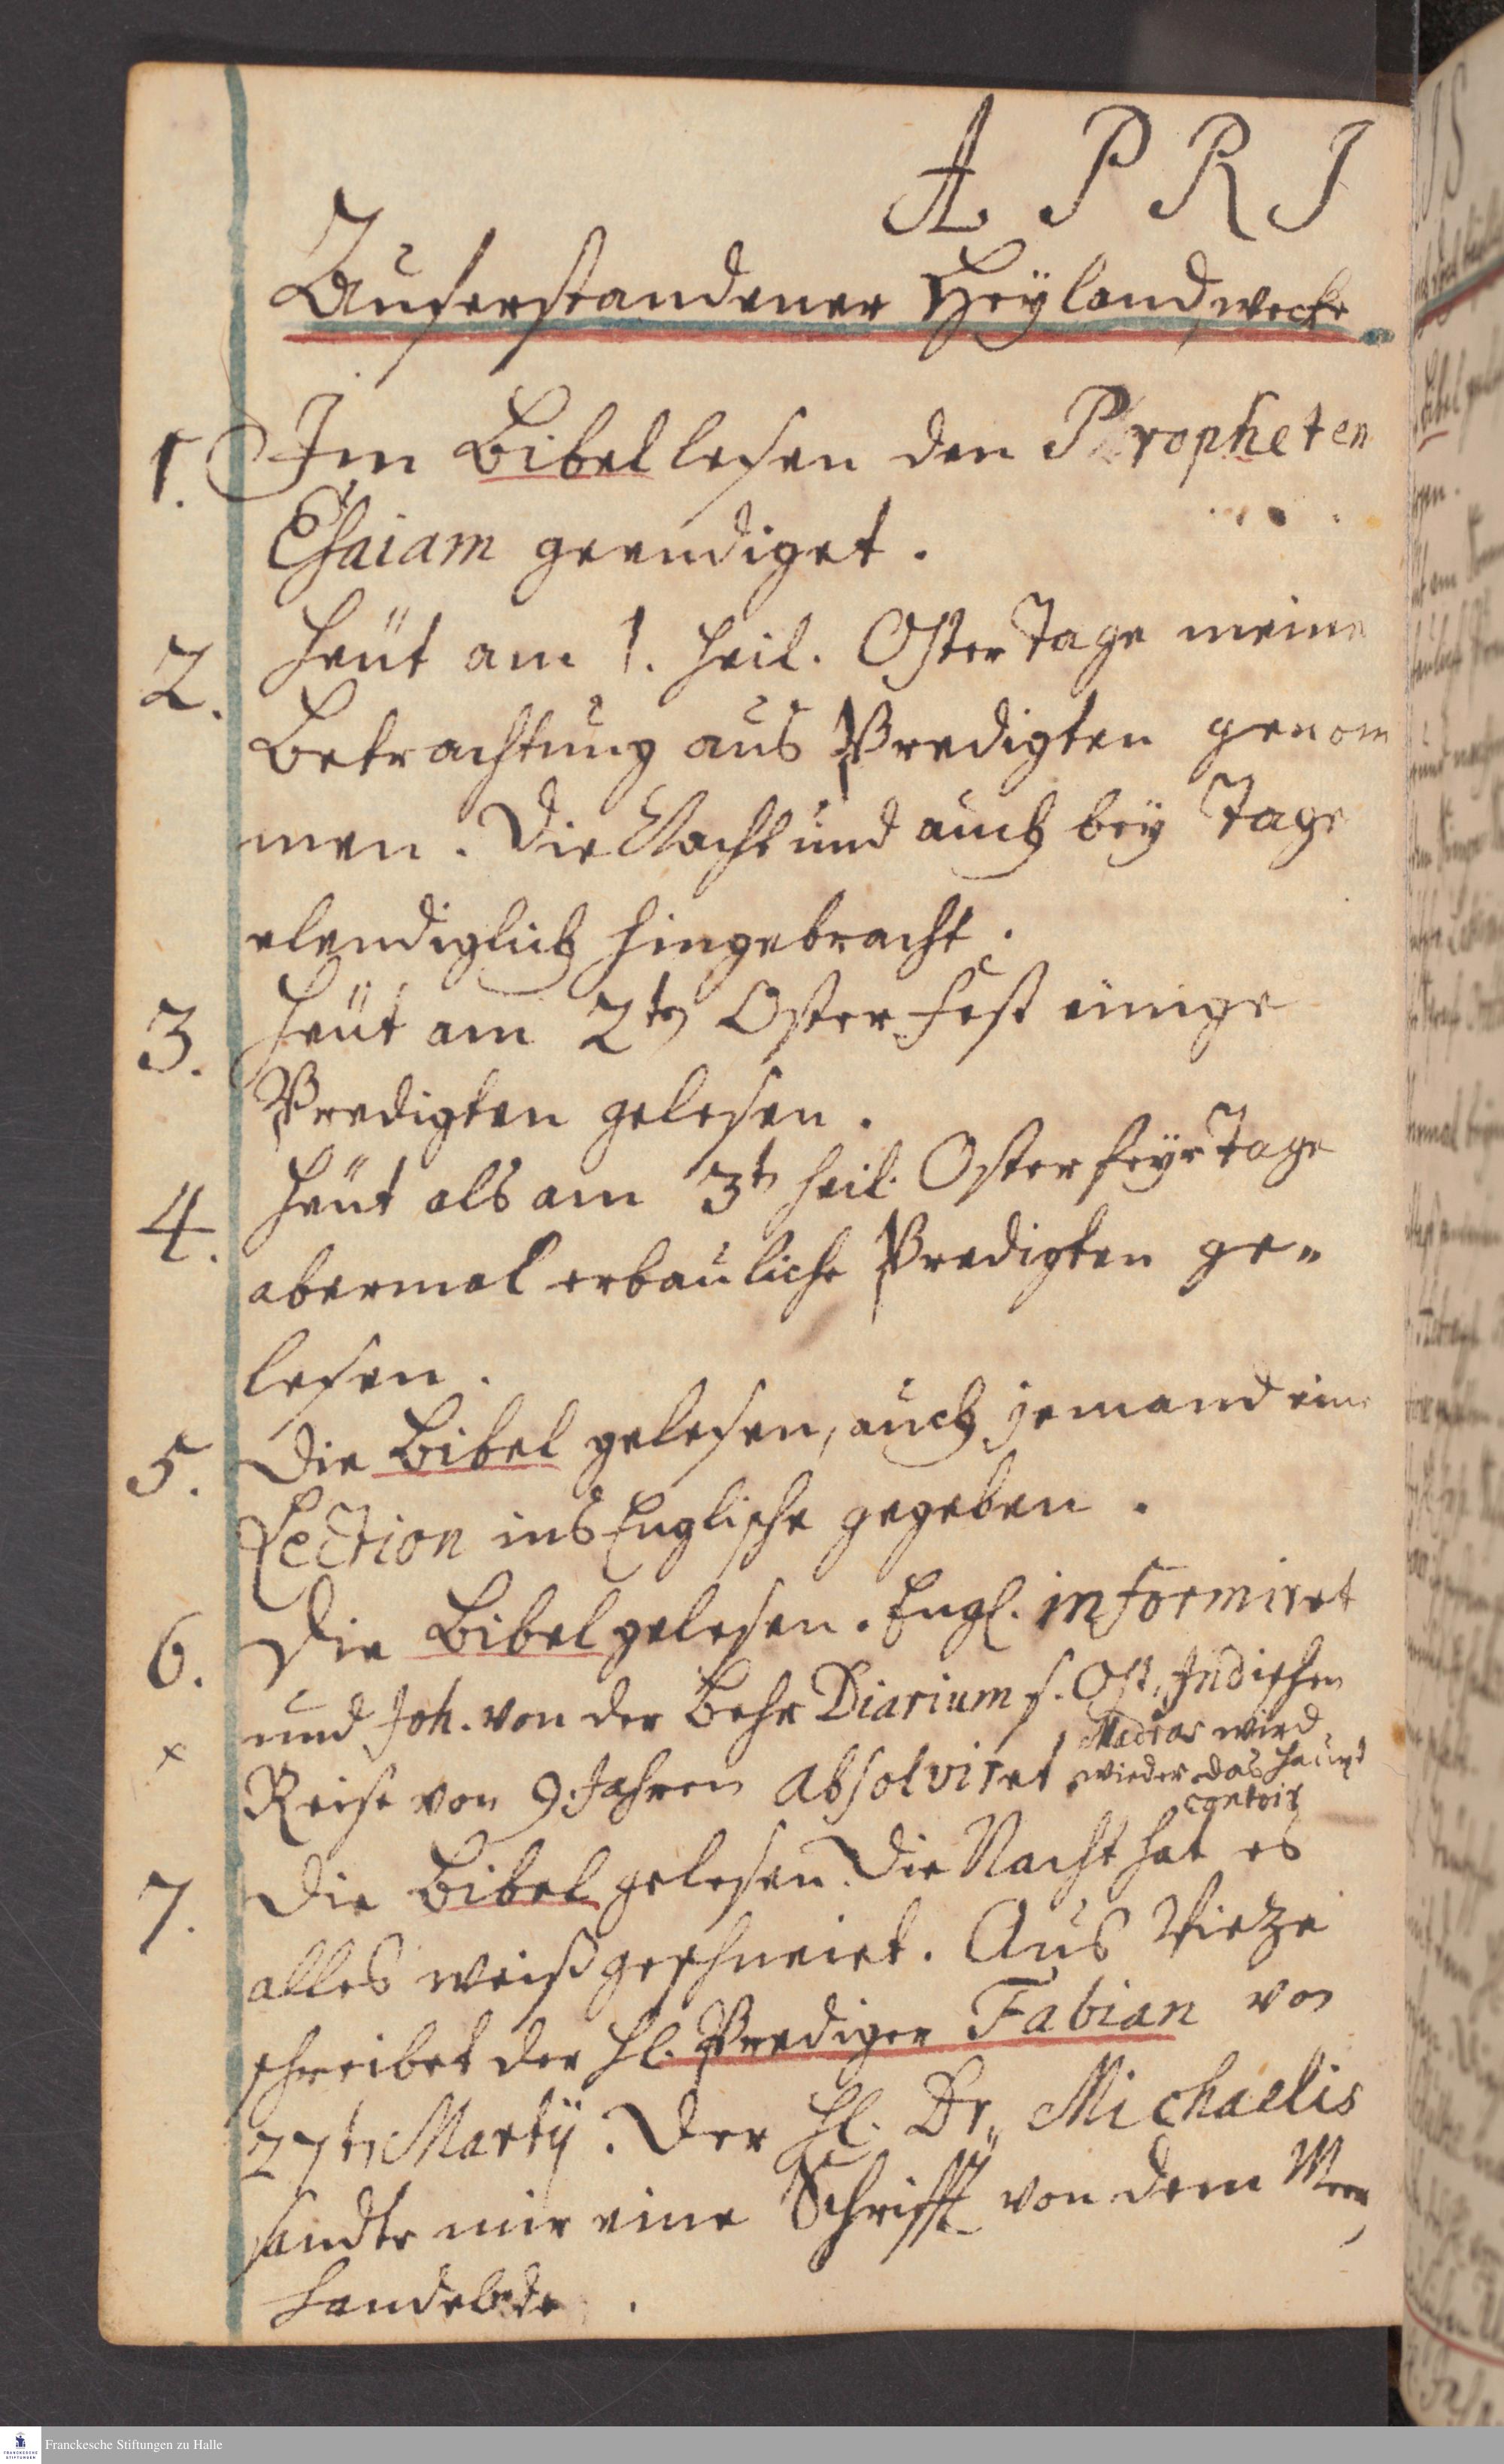 A P R I
Auferstandener Heyland, wecke
1. Im Bibel lesen den Propheten
Esaiam geendiget.
2. Heüt am 1. heil. Oster Tage meine
Betrachtung aus Predigten genom
men. Die Nacht und auch bey Tage
elendiglich hingebracht.
3. Heüt am 2ten Oster Fest einige
Predigten gelesen.
4. Heüt als am 3ten heil. Oster feyr Tage
abermal erbauliche Predigten ge-
lesen.
5. Die Bibel gelesen, auch jemand eine
Lection ins Englische gegeben.
6. Die Bibel gelesen. Engl. informiret
und Joh. von der Behr Diarium s. Ost, Indischen
Madras wird
x Reise von 9. Jahren absolviret wieder das Haupt
contoir
7. Die Bibel gelesen. Die Nacht hat es
alles weiß geschneiet. Aus Vieze
schreibet der H. Prediger Fabian von
27ten Martij. Der H. Dr. Michaelis
sandte mir eine Schrifft von dem